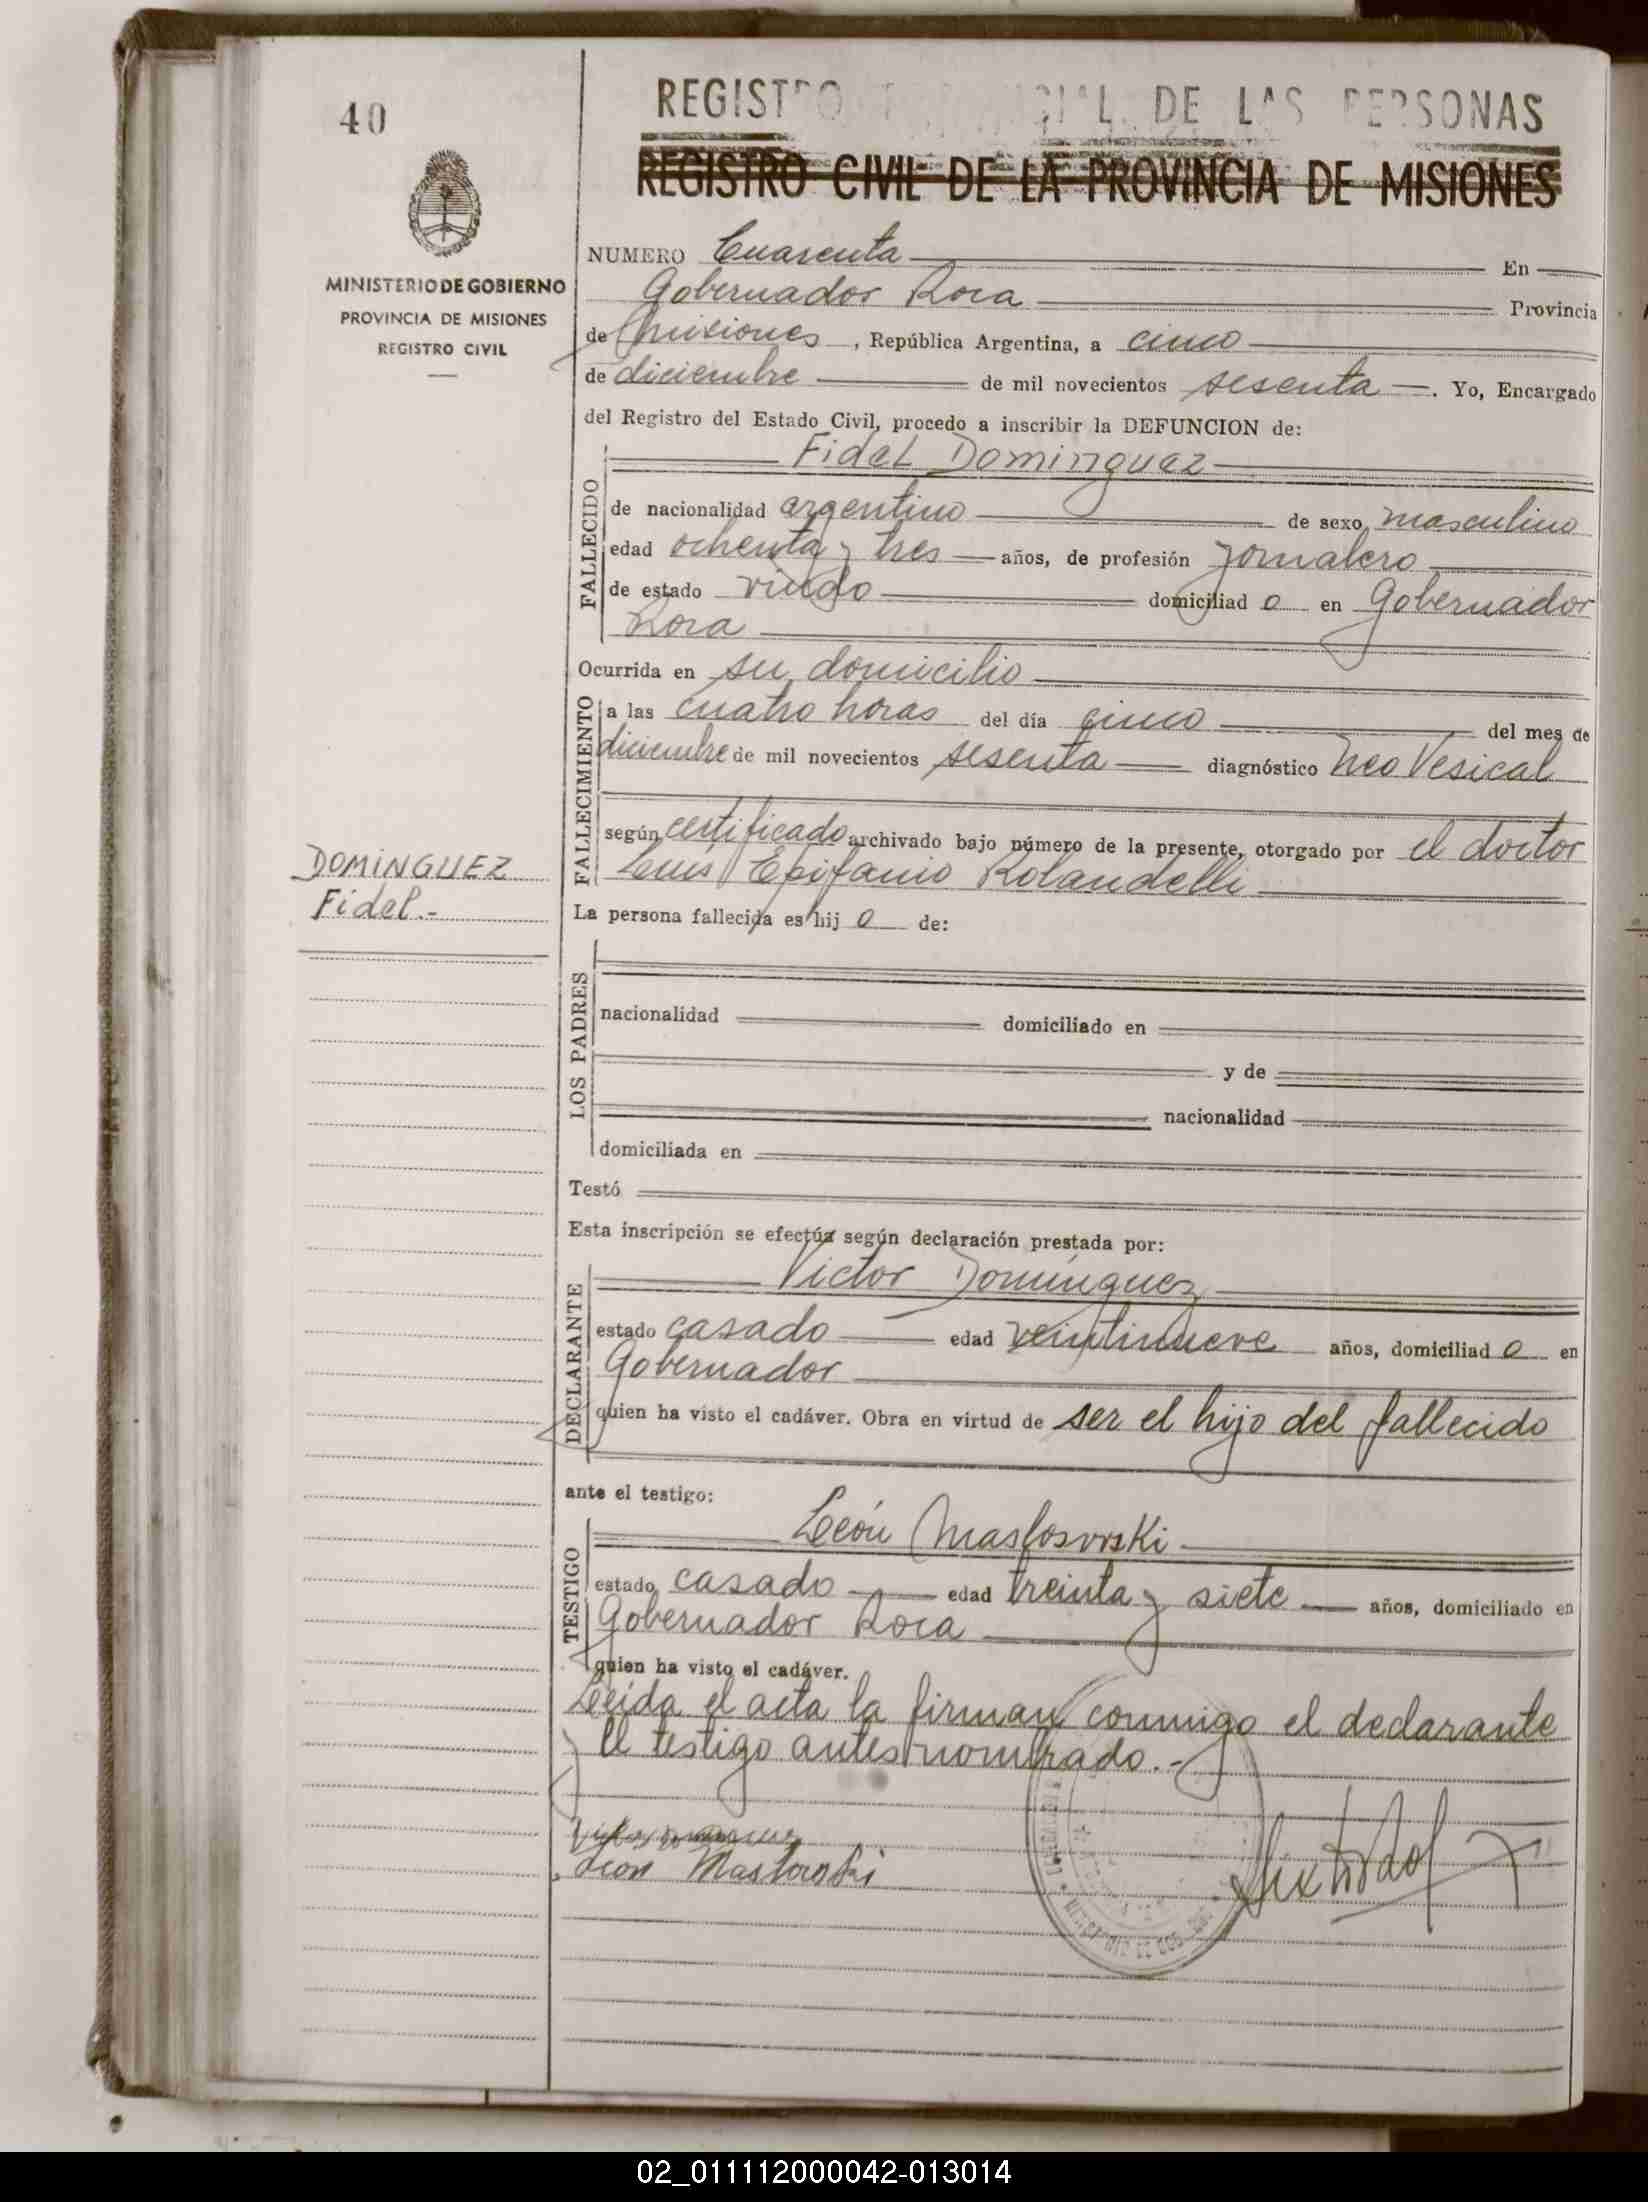 40
REGISTRO PROVINCIAL DE LAS PERSONAS
REGISTRO CIVIL DE LA PROVINCIA DE MISIONES
MINISTERIO DE GOBIERNO
PROVINCIA DE MISIONES
REGISTRO CIVIL
NUMERO Cuarenta En
Gobernador Roca Provincia
de Misiones, República Argentina, a cinco
de diciembre de mil novecientos sesenta. Yo, Encargado
del Registro del Estado Civil, procedo a inscribir la DEFUNCION de:
Fidel Dominguez
FALLECIDO
de nacionalidad argentino de sexo masculino
edad ochenta y tres años, de profesión jornalero
de estado viudo domiciliad o en Gobernador
Roca
Ocurrida en su domicilio
FALLECIMIENTO
a las cuatro horas del día cinco del mes de
diciembre de mil novecientos sesenta diagnóstico neo Vesical
según certificado archivado bajo número de la presente, otorgado por el doctor
Luis Epifanio Rolandelli
DOMINGUEZ
Fidel.-
La persona fallecida es hij o de:
LOS PADRES
nacionalidad domiciliado en
y de
nacionalidad
domiciliada en
Testó
Esta inscripción se efectúa según declaración prestada por:
Victor Domínguez
DECLARANTE
estado casado edad veintinueve años, domiciliad o en
Gobernador
quien ha visto el cadáver. Obra en virtud de ser el hijo del fallecido
ante el testigo:
León Maslosvski
TESTIGO
estado casado edad treinta y siete años, domiciliado en
Gobernador Roca
quien ha visto el cadáver.
Leída el acta la firman conmigo el declarante
y el testigo antes nombrado.-
Leon Masloroski
02_011112000042-013014